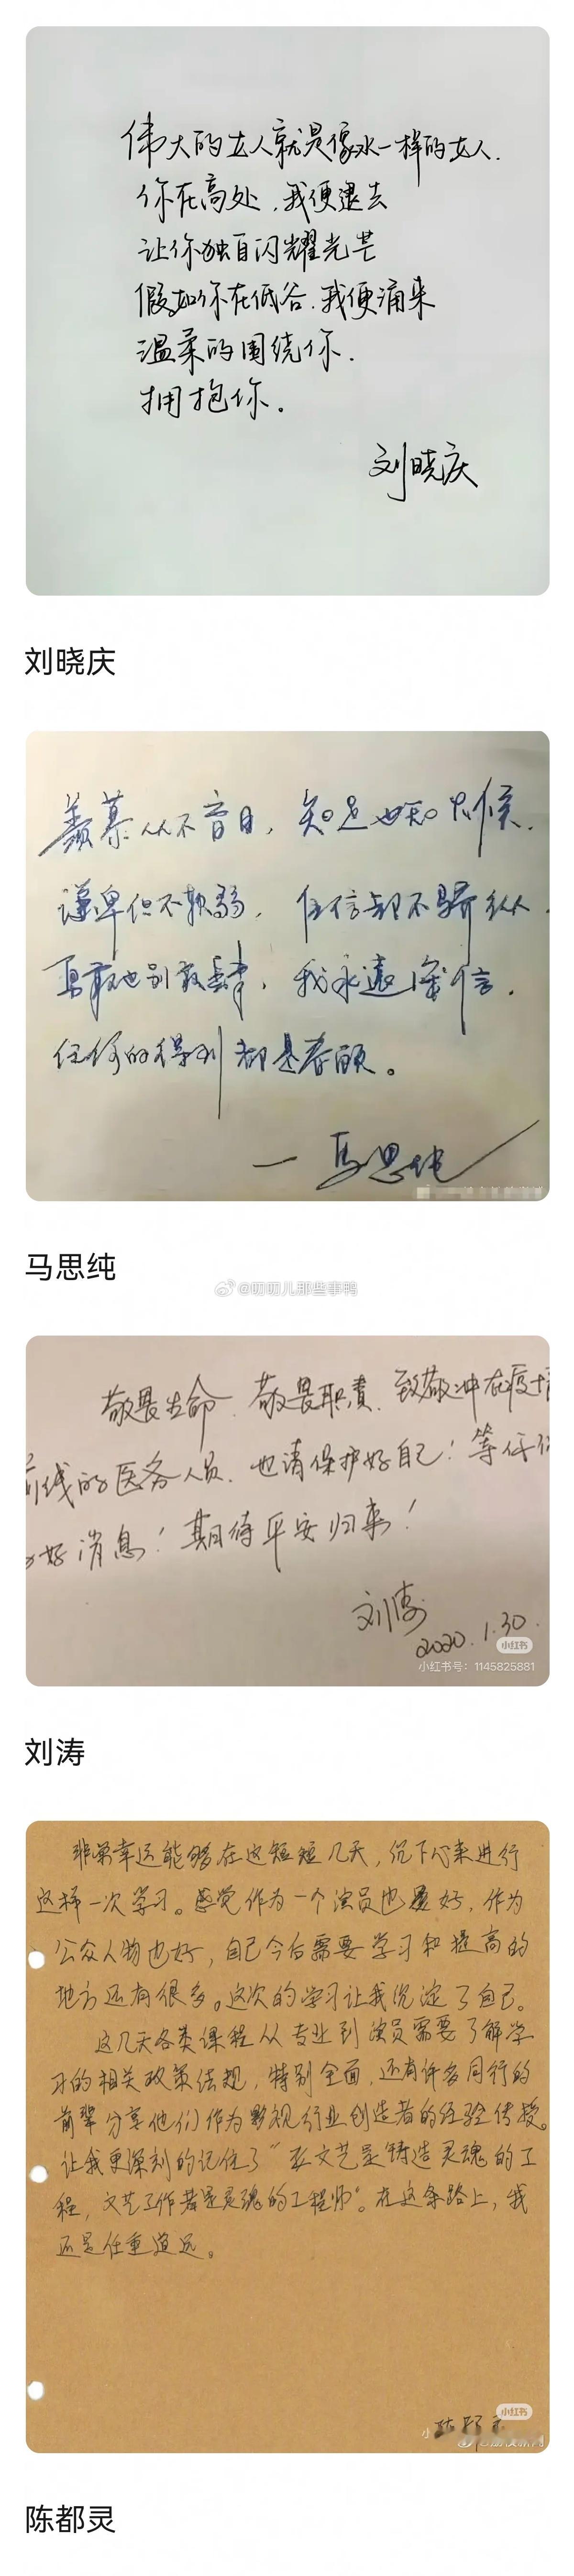 伟大的女人就是像水一样的女人.
你在高处,我便退去
让你独自闪耀光芒
假如你在低谷.我便涌来
温柔的围绕你.
拥抱你。
刘晓庆
刘晓庆
羡慕从不盲目,知足也知火候.
谦卑但不软弱,任信却不骄纵.
勇敢也别放肆,我永远深信.
任何的得到都是眷顾。
一马思纯
马思纯
@叨叨儿那些事鸭
敬畏生命.敬畏职责.致敬冲在疫情
前线的医务人员.也请保护好自己!等仔你
好消息!期待平安归来!
刘涛
2020.1.30.
小红书
小红书号:1145825881
刘涛
非常幸运能够在这短短几天,沉下心来进行
这样一次学习。感觉作为一个演员也是好,作为
公众人物也好,自己今后需要学习和提高的
地方还有很多。这次的学习让我沉淀了自己。
这几天各类课程从专业到演员需要了解学
习的相关政策法规,特别全面,还有许多同行的
前辈分享他们作为影视行业创造者的经验传授。
让我更深刻的记住了“文艺是铸造灵魂的工
程,文艺工作者是灵魂的工程师”。在这条路上,我
还是任重道远。
小红书
陈都灵